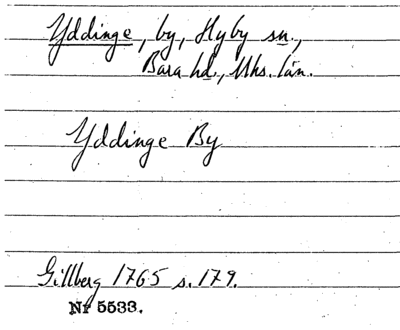 Yddinge, by, Hyby sn.,
Bara hd., Mhs. län.
Yddinge By
Gillberg 1765 s. 179.
Nr 5533.